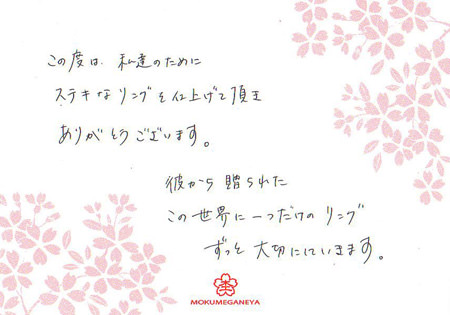 この度は、私達のために
ステキなリングを仕上げて頂き
ありがとうございます。
彼から贈られた
この世界に一つだけのリング
ずっと大切にしていきます。
MOKUMEGANEYA